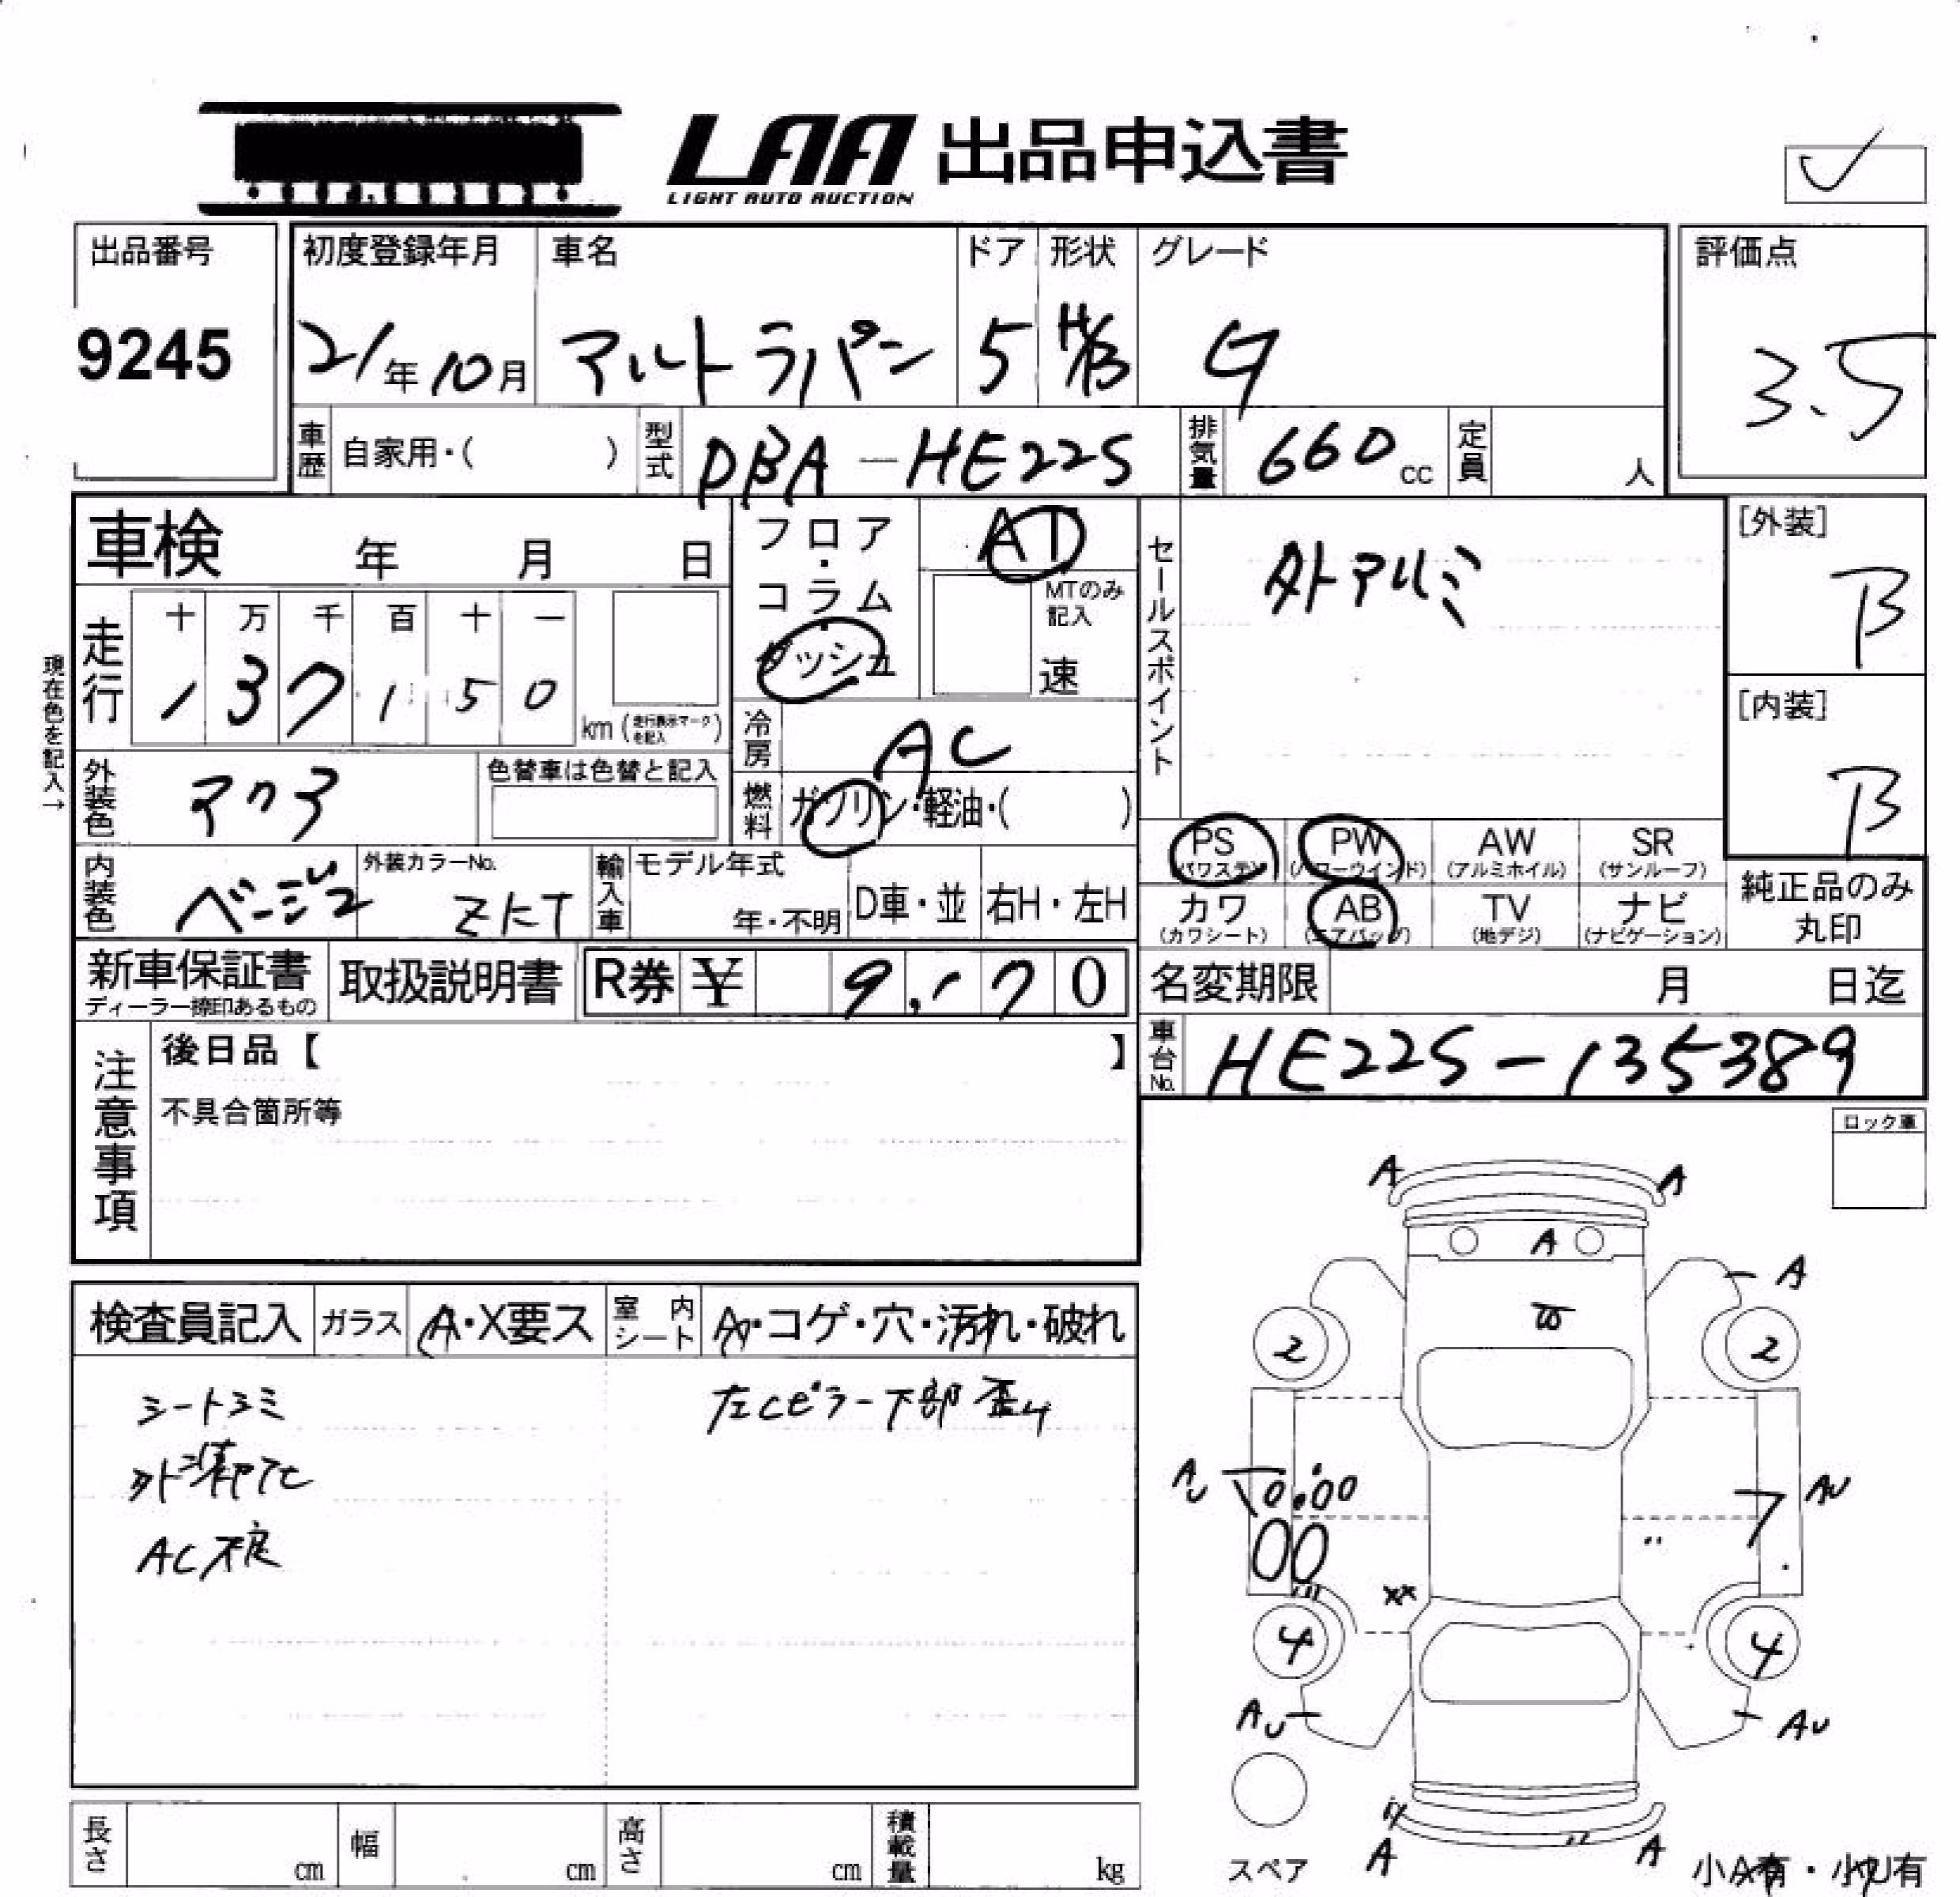 LAA 出品申込書
LIGHT AUTO AUCTION
出品番号
9245
初度登録年月
21年10月
車名
アルトラパン
ドア
5
形状
H/B
グレード
G
評価点
3.5
車歴 自家用・( )
型式 DBA-HE22S
排気量 660cc
定員 人
車検 年 月 日
フロア・コラム・ダッシュ
AT
MTのみ記入
速
走行
十 万 千 百 十 一
1 3 7 1 5 0
km (走行表示マークを記入)
現在色を記入→
外装色 アクア
色替車は色替と記入
冷房 AC
燃料 ガソリン・軽油・( )
セールスポイント
外アルミ
[外装]
B
[内装]
B
PS (パワステ)
PW (パワーウインド)
AW (アルミホイル)
SR (サンルーフ)
カワ (カワシート)
AB (エアバッグ)
TV (地デジ)
ナビ (ナビゲーション)
純正品のみ
丸印
内装色 ベージュ
外装カラーNo. ZKT
輸入車
モデル年式
年・不明
D車・並
右H・左H
新車保証書
ディーラー捺印あるもの
取扱説明書
R券 ¥ 9,170
名変期限 月 日迄
車台No. HE22S-135389
注意事項
後日品【 】
不具合箇所等
ロック車
検査員記入
ガラス A・X要ス
室内シート A・コゲ・穴・汚れ・破れ
シートシミ
AC不良
左Cピラー下部歪み
A A
A
A
2 2
AU
AU
7
XX
4 4
AU
AU
A A
スペア
小A有・小U有
長さ cm
幅 cm
高さ cm
積載量 kg